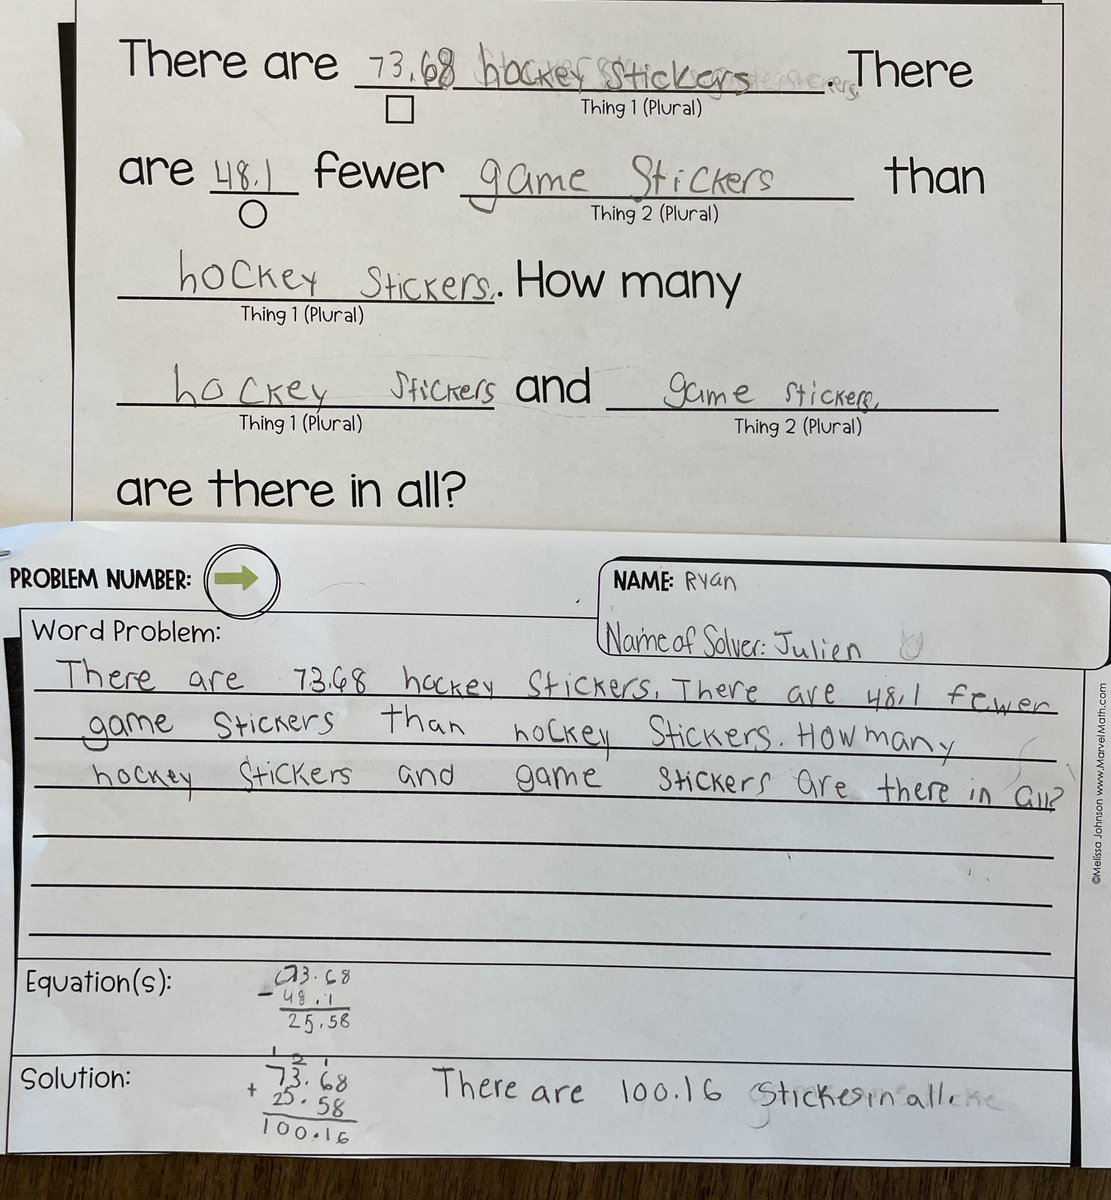 There are 73.68 hockey stickers . There
Thing 1 (Plural)
are 48.1 fewer game Stickers than
Thing 2 (Plural)
hockey Stickers. . How many
Thing 1 (Plural)
hockey Stickers and game stickers,
Thing 1 (Plural) Thing 2 (Plural)
are there in all?
PROBLEM NUMBER:
NAME: Ryan
Name of Solver: Julien
Word Problem:
There are 73.68 hockey Stickers. There are 48.1 fewer
game Stickers than hockey Stickers. How many
hockey Stickers and game stickers are there in all?
©Melissa Johnson www.MarvelMath.com
Equation(s):
73.68
- 48.1
25.58
Solution:
1 2 1
73.68
+ 25.58
100.16
There are 100.16 Stickes in all.